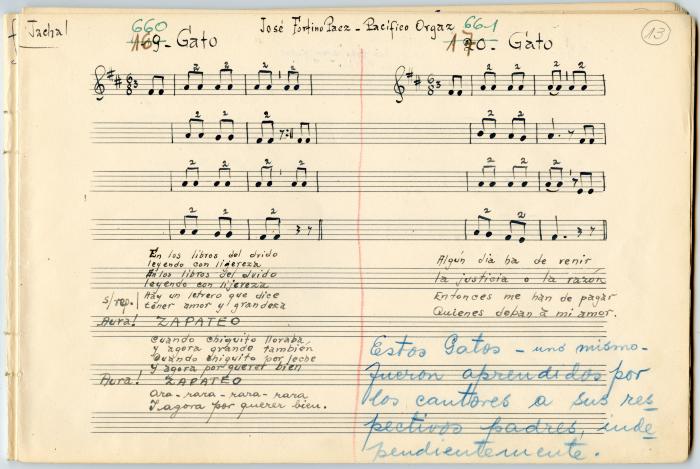 Jachal
José Fortino Paez - Pacífico Orgaz
13
660
9- Gato
661
17
20- Gato
2 2 2
2 2 2
2 2
2 2
2 2
2 2
2 2
2 2
En los libros del dvido
leyendo con lijereza
En los libros del dvido
leyendo con lijereza
s/rep. Hay un letrero que dice
tener amor y grandeza
Aura! ZAPATEO
Cuando chiquito lloraba,
y agora grande también
Cuando chiquito por leche
Y agora por querer bien
Aura! ZAPATEO
Ara-rara-rara-rara
Y agora por querer bien.
Algún día ha de venir
la justicia o la razón
Entonces me han de pagar
Quienes deban á mi amor.
Estos Gatos - uno mismo-
fueron aprendidos por
los cantores a sus res
pectivos padres, inde
pendientemente.